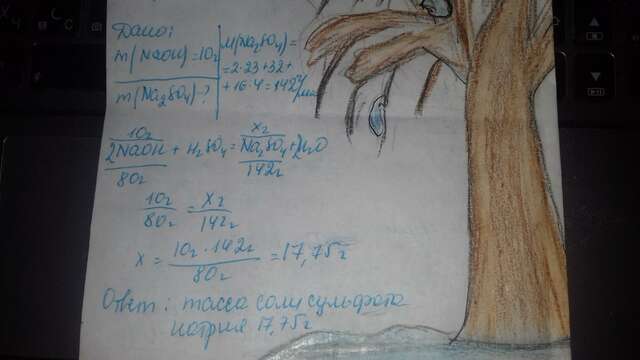 Дано:
m(NaOH)=10г
m(Na₂SO₄)-?
M(Na₂SO₄)=
=2·23+32+
+16·4=142г/моль
10г xг
2NaOH + H₂SO₄ = Na₂SO₄+2H₂O
80г 142г
10г/80г = xг/142г
x = 10г·142г/80г = 17,75г
Ответ: масса соли сульфата
натрия 17,75г